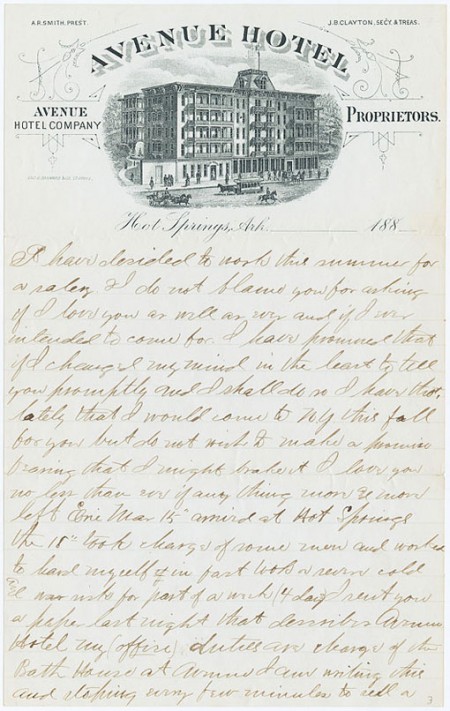 A.R. SMITH, PREST.
J.B. CLAYTON, SECY. & TREAS.
AVENUE HOTEL
AVENUE
HOTEL COMPANY
PROPRIETORS.
Hot Springs, Ark. 188
I have decided to work this summer for
a salery & I do not blame you for asking
if I love you as well as ever and if I ever
intended to come for. I have promised that
if I changed my mind in the least to tell
you promptly and I shall do so I have thot,
lately that I would come to NY this fall
for you but do not wish to make a promise
fearing that I might brake it I love you
no less than ever if any thing more
left Erie Mar 15" arrived at Hot Springs
the 18" took charge of some men and worked
to hard myself & in fact took a severe cold
for part of a week (4 days) I sent you
a paper last night that describes Avenue
Hotel my (office) duties are charge of the
Bath House at Avenue I am writing this
and stoping every few minutes to sell a
3